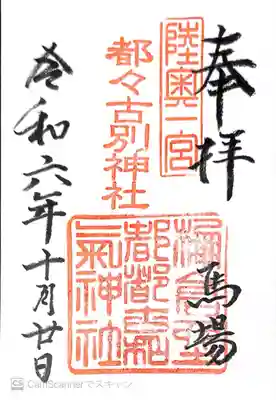 奉拝
馬場
陸奥一宮
都々古別神社
都都古和
氣神社
令和六年十月廿日
CS CamScannerでスキャン